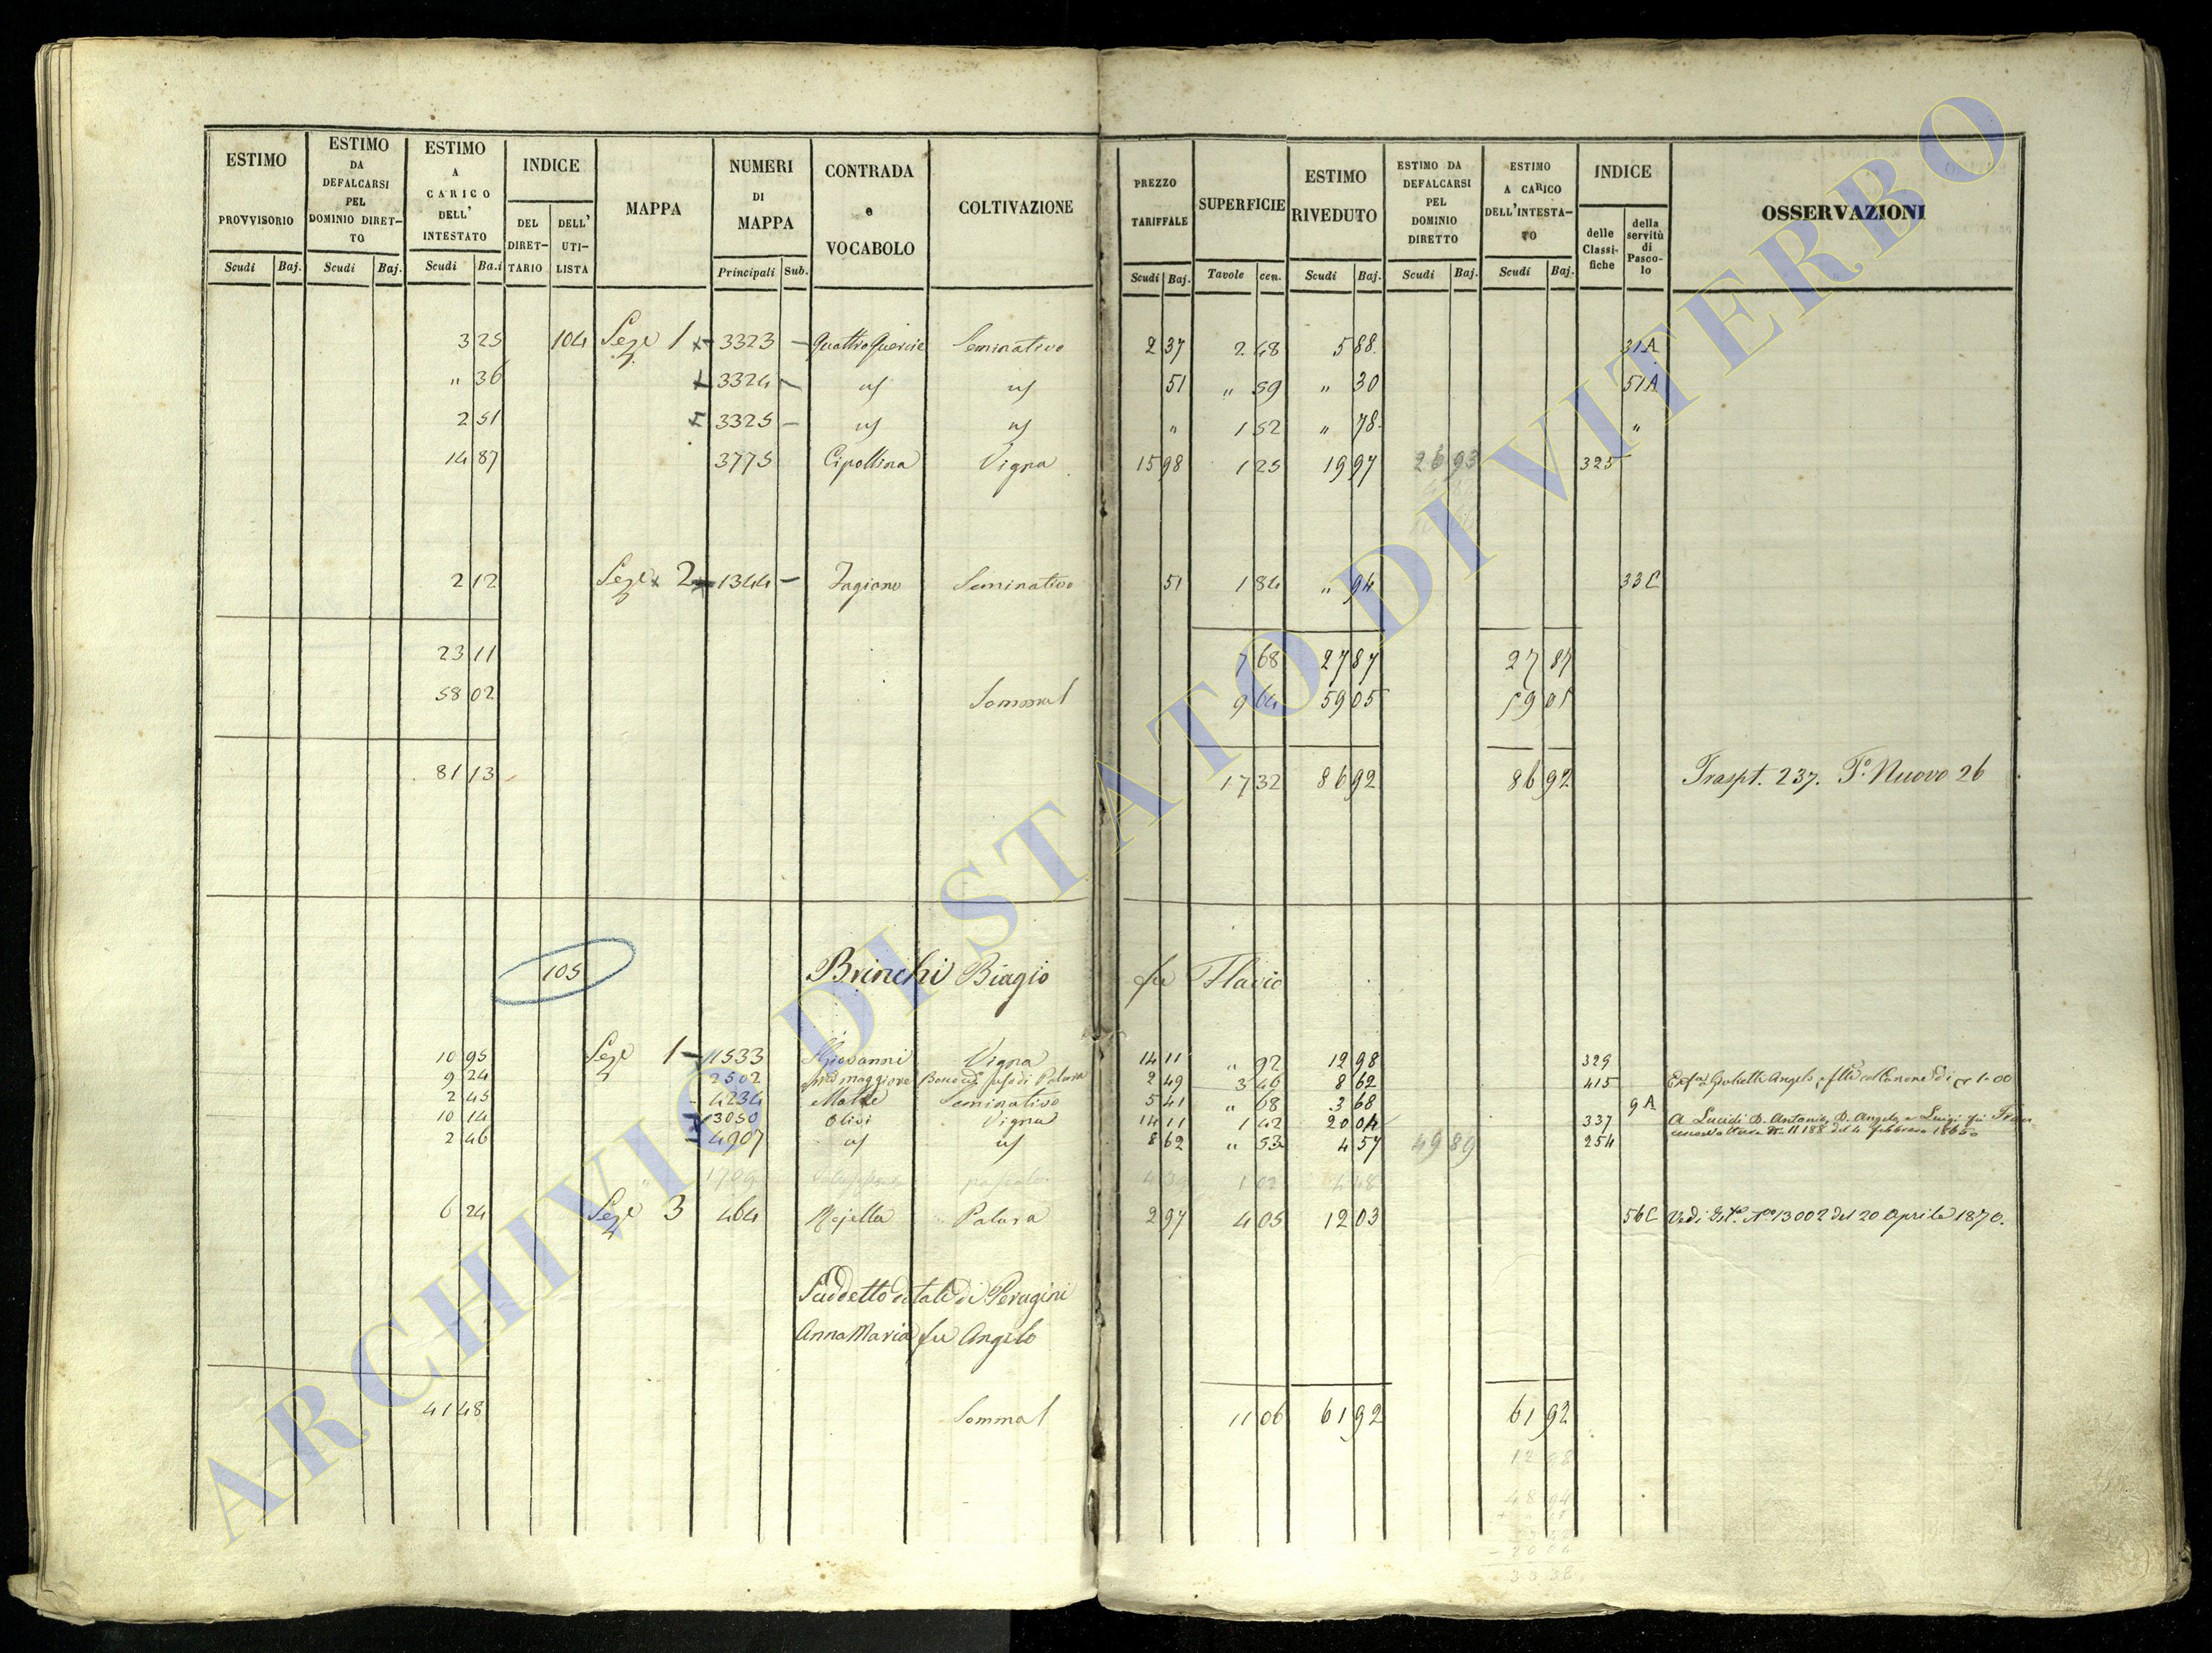 ESTIMO PROVVISORIO Scudi Baj.
ESTIMO DA DEFALCARSI PEL DOMINIO DIRET-TO Scudi Baj.
ESTIMO A CARICO DELL' INTESTATO Scudi Ba.i
INDICE DEL DIRET-TARIO DELL' UTI-LISTA
MAPPA
NUMERI DI MAPPA Principali Sub.
CONTRADA e VOCABOLO
COLTIVAZIONE
PREZZO TARIFFALE Scudi Baj.
SUPERFICIE Tavole cen.
ESTIMO RIVEDUTO Scudi Baj.
ESTIMO DA DEFALCARSI PEL DOMINIO DIRETTO Scudi Baj.
ESTIMO A CARICO DELL'INTESTA-TO Scudi Baj.
INDICE delle Classi-fiche della servitù di Pasco-lo
OSSERVAZIONI
3 25 104 Seze 1 3323 — Quattro Quercie Seminativo 2 37 2 48 5 88 31A
" 36 3324 — us us 51 " 59 " 30 51A
2 51 3325 — us us " 1 52 " 78 "
14 87 3775 Cipollina Vigna 15 98 1 25 19 97 26 93 325
2 12 Seze 2 1344 — Fagiano Seminativo 51 1 84 " 94 33C
23 11 7 68 27 87 27 87
58 02 Somma 9 64 59 05 59 05
81 13 17 32 86 92 86 92 Traspt. 237. P. Nuovo 26
105 Brinchi Biagio fu Flavio
10 95 Seze 1 1533 S Giovanni Vigna 14 11 " 92 12 98 329
9 24 2502 maggiore 2 49 3 46 8 62 415 Giulietti Angelo 1.00
2 45 4234 Matte Seminativo 5 41 " 68 3 68 9A
10 14 3050 Olivi Vigna 14 11 1 42 20 04 337 A Lucidi D. Antonio, D. Angelo e Luigi fu
2 46 4907 us us 8 62 " 53 4 57 49 89 254 11188 del 4 febbraro 1865
1709
6 24 Seze 3 464 Mojella Palara 2 97 4 05 12 03 56C Vedi Ist. N° 13002 del 20 Aprile 1870.
Suddetto dotali di Perugini
Anna Maria fu Angelo
41 48 Somma 11 06 61 92 61 92
12 98
ARCHIVIO DI STATO DI VITERBO